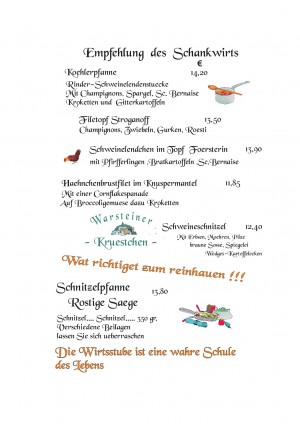 Empfehlung des Schankwirts
€
Kochlerpfanne 14,20
Rinder-Schweinelendenstuecke
Mit Champignons, Spargel, Sc. Bernaise
Kroketten und Gitterkartoffeln
Filetopf Stroganoff 13,50
Champignons, Zwiebeln, Gurken, Roesti
Schweinelendchen im Topf Foersterin 13,90
mit Pfirfferlingen Bratkartoffeln Sc.Bernaise
Haehnchenbrustfilet im Knuspermantel 11,85
Mit einer Cornflakespanade
Auf Broccoligemuese dazu Kroketten
Warsteiner
- Kruestchen -
Schweineschnitzel 12,40
Mit Erbsen, Moehren, Pilze
braune Sosse, Spiegelei
Wedges-Kartoffelecken
Wat richtiget zum reinhauen !!!
Schnitzelpfanne 13,80
Rostige Saege
Schnitzel.... Schnitzel..... 350 gr,
Verschiedene Beilagen
lassen Sie sich ueberraschen
Die Wirtsstube ist eine wahre Schule
des Lebens